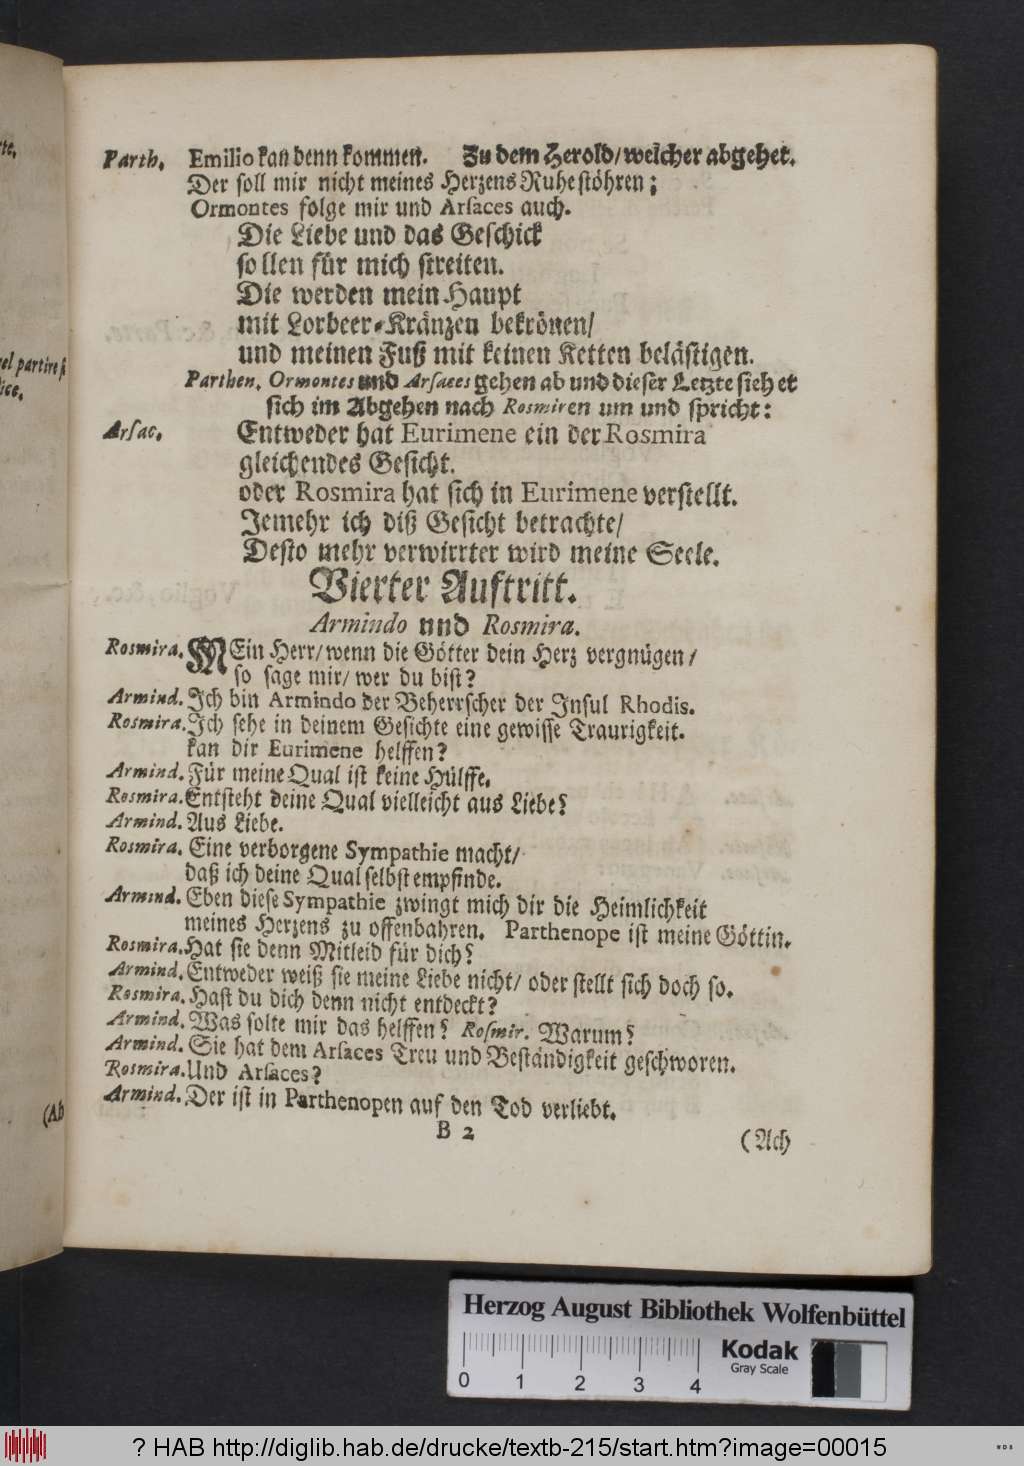 Parth. Emilio kan denn kommen. Zu dem Herold/welcher abgehet.
Der soll mir nicht meines Herzens Ruhe stöhren;
Ormontes folge mir und Arsaces auch.
Die Liebe und das Geschick
sollen für mich streiten.
Die werden mein Haupt
mit Lorbeer-Kränzen bekrönen/
und meinen Fuß mit keinen Ketten belästigen.
Parthen. Ormontes und Arsaces gehen ab und dieser Letzte siehet
sich im Abgehen nach Rosmiren um und spricht:
Arsac. Entweder hat Eurimene ein der Rosmira
gleichendes Gesicht.
oder Rosmira hat sich in Eurimene verstellt.
Jemehr ich diß Gesicht betrachte/
Desto mehr verwirrter wird meine Seele.
Vierter Auftritt.
Armindo und Rosmira.
Rosmira. MEin Herr/wenn die Götter dein Herz vergnügen/
so sage mir/wer du bist?
Armind. Ich bin Armindo der Beherrscher der Insul Rhodis.
Rosmira. Ich sehe in deinem Gesichte eine gewisse Traurigkeit.
kan dir Eurimene helffen?
Armind. Für meine Qual ist keine Hülffe.
Rosmira. Entsteht deine Qual vielleicht aus Liebe?
Armind. Aus Liebe.
Rosmira. Eine verborgene Sympathie macht/
daß ich deine Qual selbst empfinde.
Armind. Eben diese Sympathie zwingt mich dir die Heimlichkeit
meines Herzens zu offenbahren. Parthenope ist meine Göttin.
Rosmira. Hat sie denn Mitleid für dich?
Armind. Entweder weiß sie meine Liebe nicht/ oder stellt sich doch so.
Rosmira. Hast du dich denn nicht entdeckt?
Armind. Was solte mir das helffen? Rosmir. Warum?
Armind. Sie hat dem Arsaces Treu und Beständigkeit geschworen.
Rosmira. Und Arsaces?
Armind. Der ist in Parthenopen auf den Tod verliebt.
B 2
(Ach
(Ab
Herzog August Bibliothek Wolfenbüttel
Kodak
Gray Scale
0 1 2 3 4
? HAB http://diglib.hab.de/drucke/textb-215/start.htm?image=00015